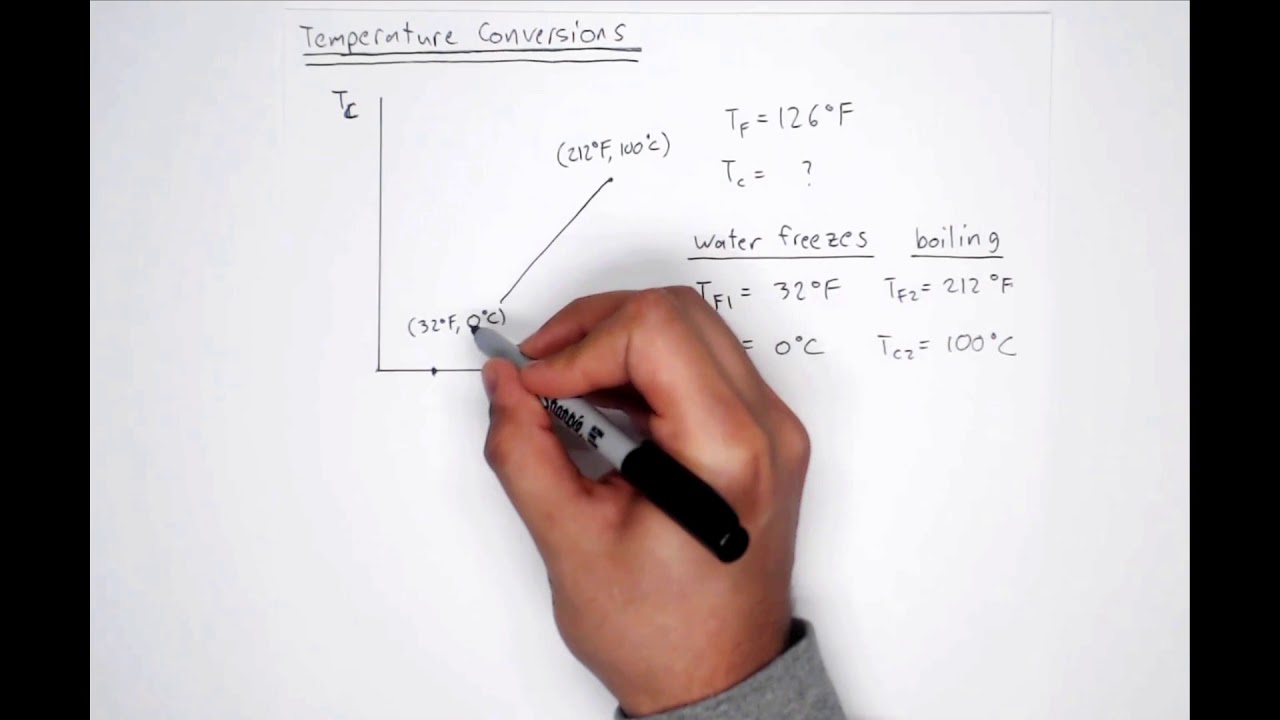 Temperature Conversions
Tc
(212°F, 100°C)
(32°F, 0°C)
TF = 126°F
Tc = ?
water freezes boiling
TF1 = 32°F TF2 = 212°F
= 0°C Tc2 = 100°C
Sharpie